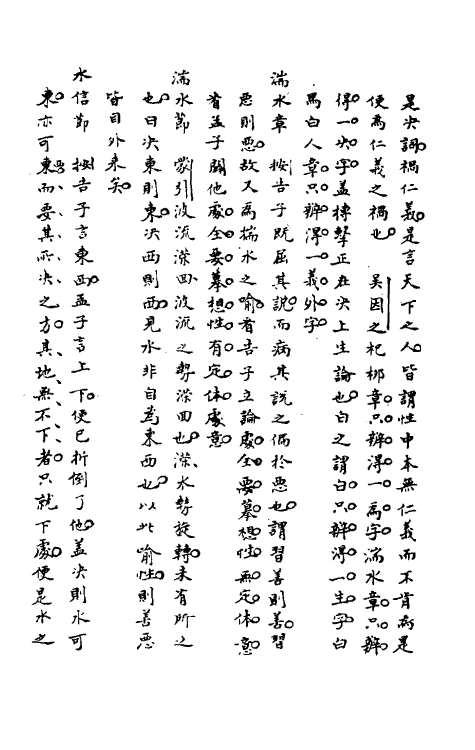 是决詞禍仁義是言天下之人皆謂性中本無仁義而不肯為是
便為仁義之禍也　吳因之杞柳章只辨得一為字湍水章只辨
得一决字蓋摶擊正在决上生論也白之謂白只辨得一生字白
馬白人章只辨得一義外字
湍水章　按告子既屈其說而病其說之偏於惡也謂習善則善習
惡則惡故又為湍水之喻看告子立論處全要摹想性無定体意
看孟子闢他處全要摹想性有定体處意
湍水節　蒙引波流濚回波流之勢濚回也濚水勢旋轉未有所之
也曰决東則東决西則西見水非自為東西也以此喻性則善惡
皆自外來矣
水信節　按告子言東西孟子言上下便已折倒了他蓋决則水可
東亦可東而要其所决之方其地無不下者只就下處便是水之